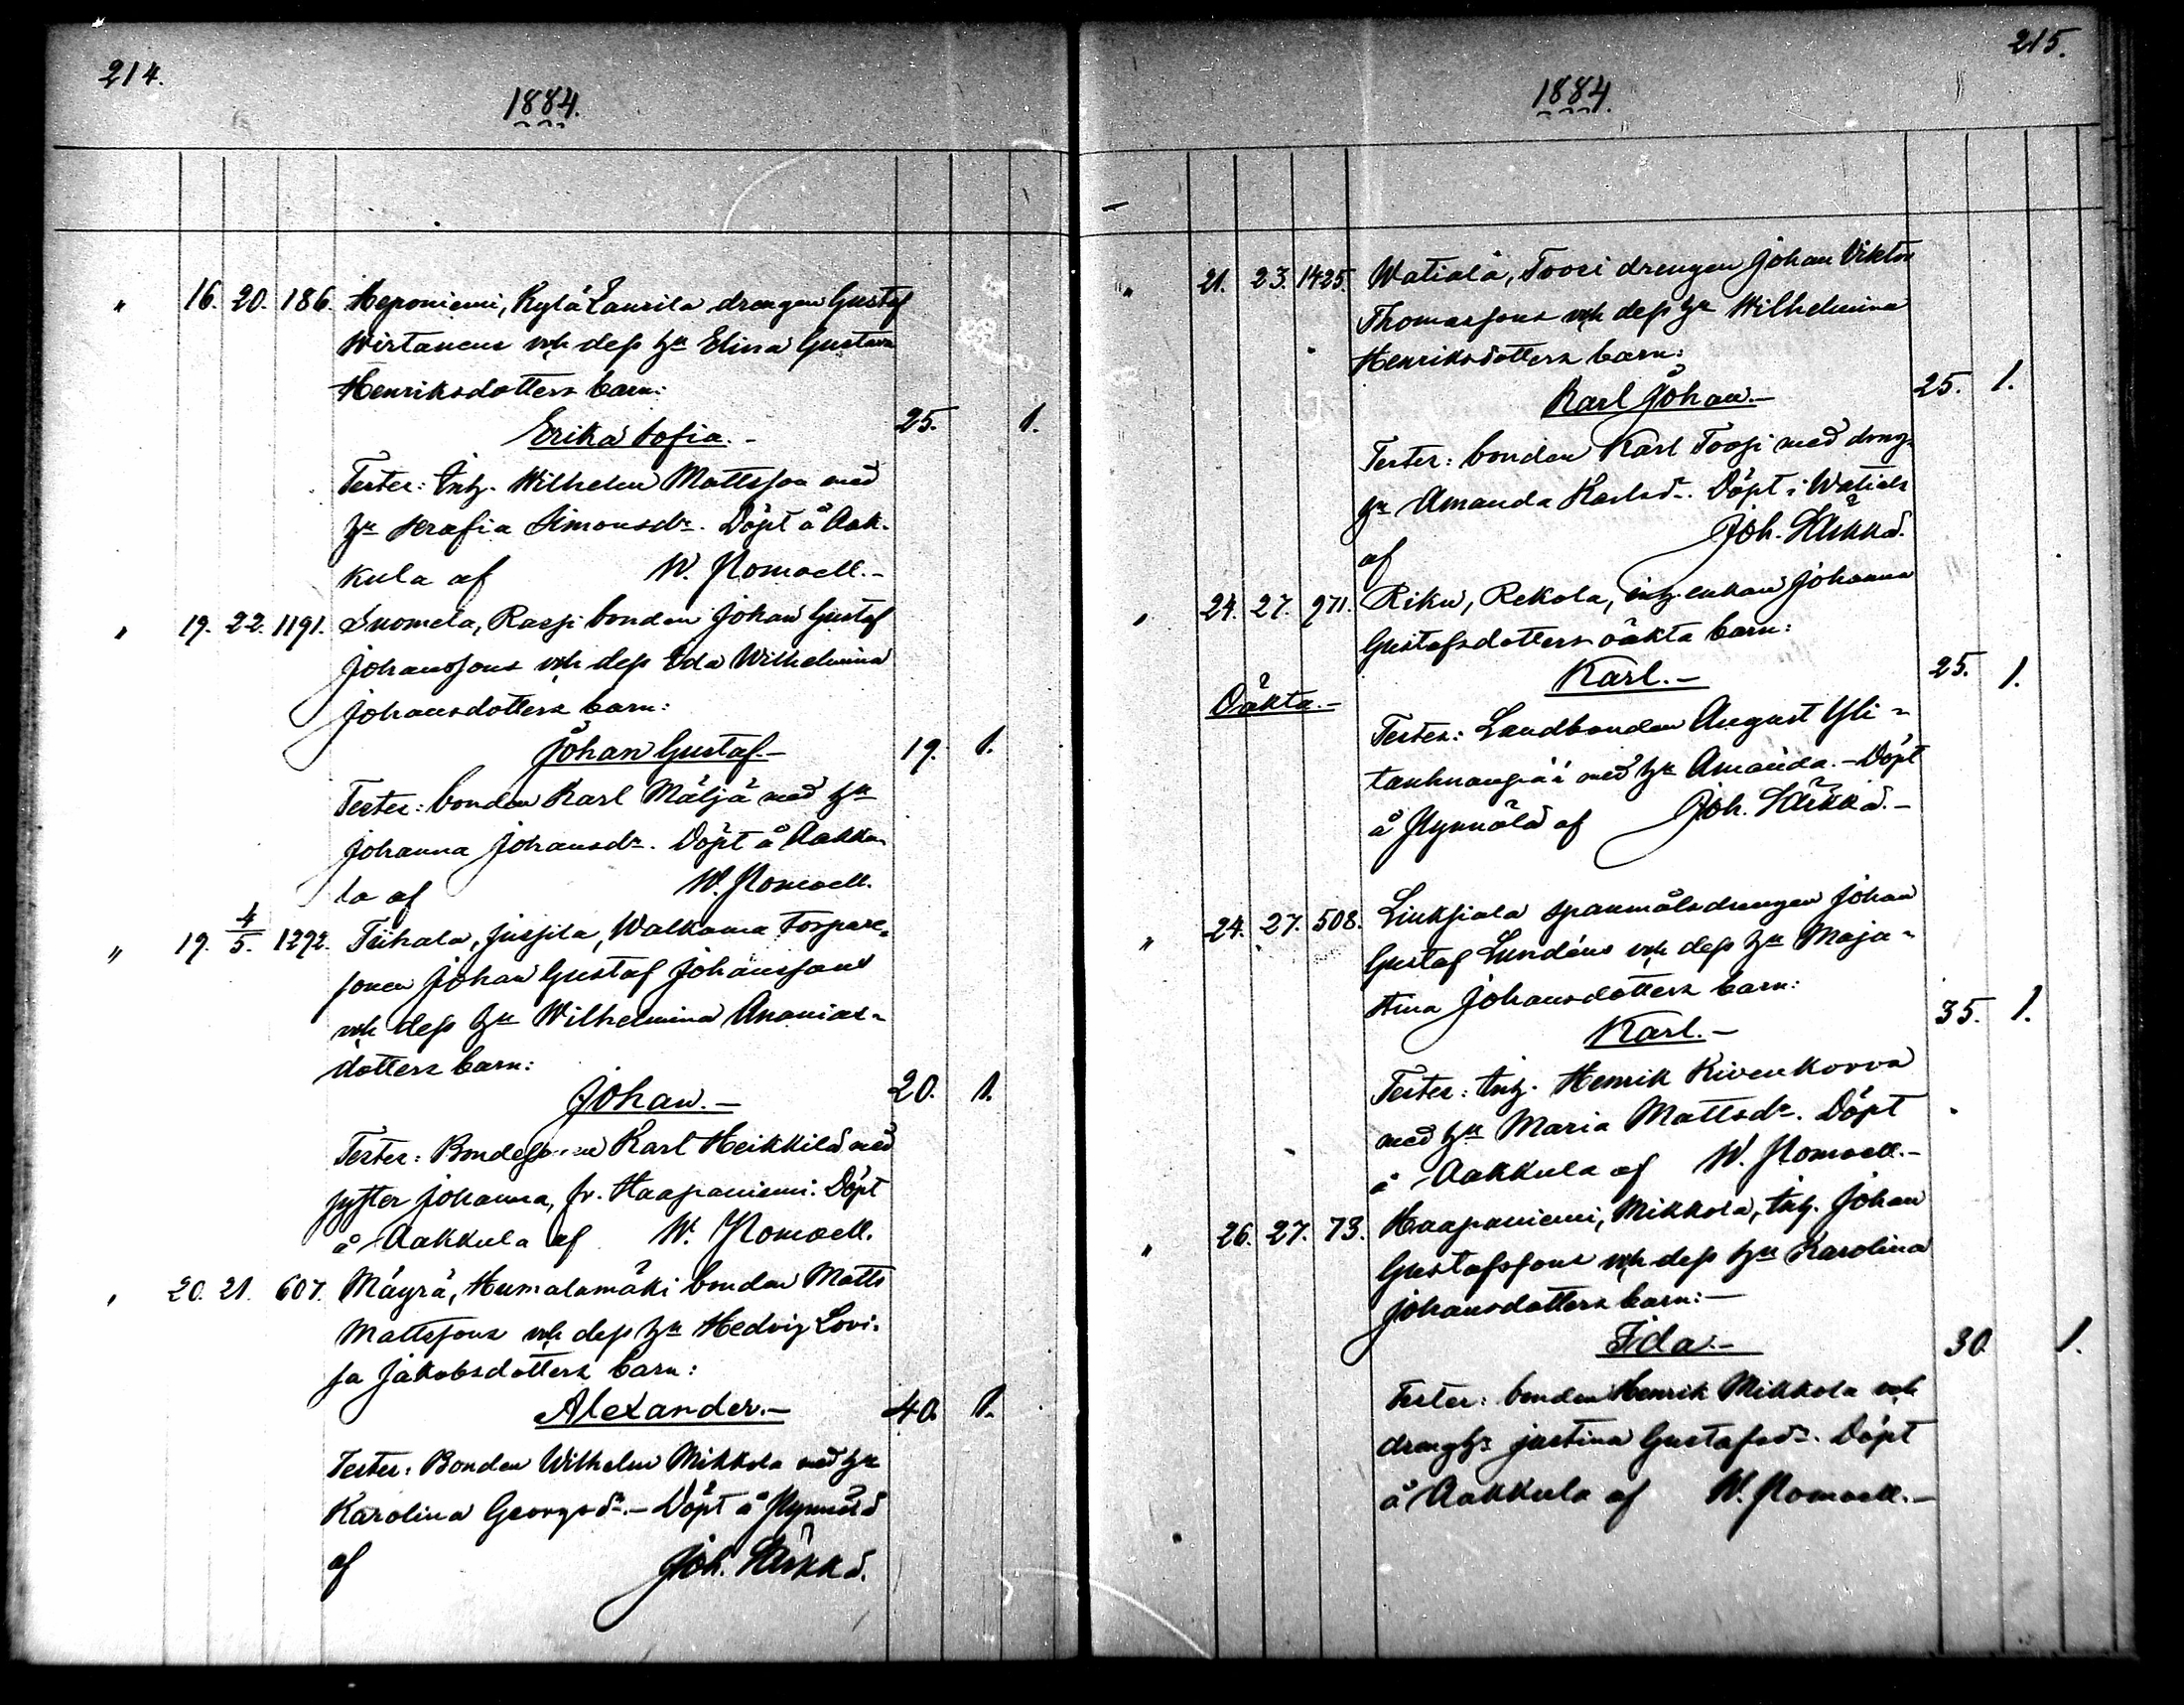 214.
1884.
" 16. 20. 186. Heponiemi, Kylä Laurila drengen Gustaf
Wirtanens och dess hu Elina Gustava
Henriksdotters barn:
Erika Sofia. – 25. 1.
Tester: Inh. Wilhelm Mattsson med
hu Serafia Simonsdr. Döpt å Aak-
kula af W. Nomoell. –
" 19. 22. 1191. Suomela, Rassi bonden Johan Gustaf
Johanssons och dess Ida Wilhelmina
Johansdotters barn:
Johan Gustaf – 19. 1.
Tester: bonden Karl Mäljä med hu
Johanna Johansdr. Döpt å Aakku-
la af W. Nomoell.
" 19. 4/5. 1292. Tiihala, Jussila, Walkama torpare-
sonen Johan Gustaf Johanssons
och dess hu Wilhelmina Ananias-
dotters barn:
Johan. – 20. 1.
Tester: Bondesonen Karl Heikkilä med
syster Johanna, fr. Haapaniemi. Döpt
å Aakkula af W. Nomoell.
" 20. 21. 607. Mäyrä, Humalamäki bonden Matts
Mattssons och dess hu Hedvig Lovi-
sa Jakobsdotters barn:
Alexander. – 40. 1.
Tester: Bonden Wilhelm Mikkola med hu
Karolina Georgsdr. – Döpt å Nynnälä
af Joh. Särkkä.
215.
1884.
" 21. 23. 1425. Watiala, Toosi drengen Johan Viktor
Thomassons och dess hu Wilhelmina
Henriksdotters barn:
Karl Johan. – 25. 1.
Tester: bonden Karl Toosi med dreng-
hu Amanda Karlsdr. Döpt i Watiala
af Joh. Särkkä.
" 24. 27. 971. Riku, Rekola, inh. enkan Johanna
Gustafsdotters oäkta barn:
Karl. – 25. 1.
Oäkta. –
Tester: Landbonden August Yli-
tanhuanpää med hu Amanda. – Döpt
å Nynnälä af Joh. Särkkä. –
" 24. 27. 508. Liuksiala spanmålsdrengen Johan
Gustaf Lundéns och dess hu Maja-
Stina Johansdotters barn:
Karl. – 35. 1.
Tester: Inh. Henrik Kivenkorva
med hu Maria Mattsdr. Döpt
å Aakkula af W. Nomoell. –
" 26. 27. 73. Haapaniemi, Mikkola, Inh. Johan
Gustafssons och dess hu Karolina
Johansdotters barn: –
Iida. – 30 1.
Tester: bonden Henrik Mikkola och
drengh. Justina Gustafsdr. Döpt
å Aakkula af W. Nomoell. –